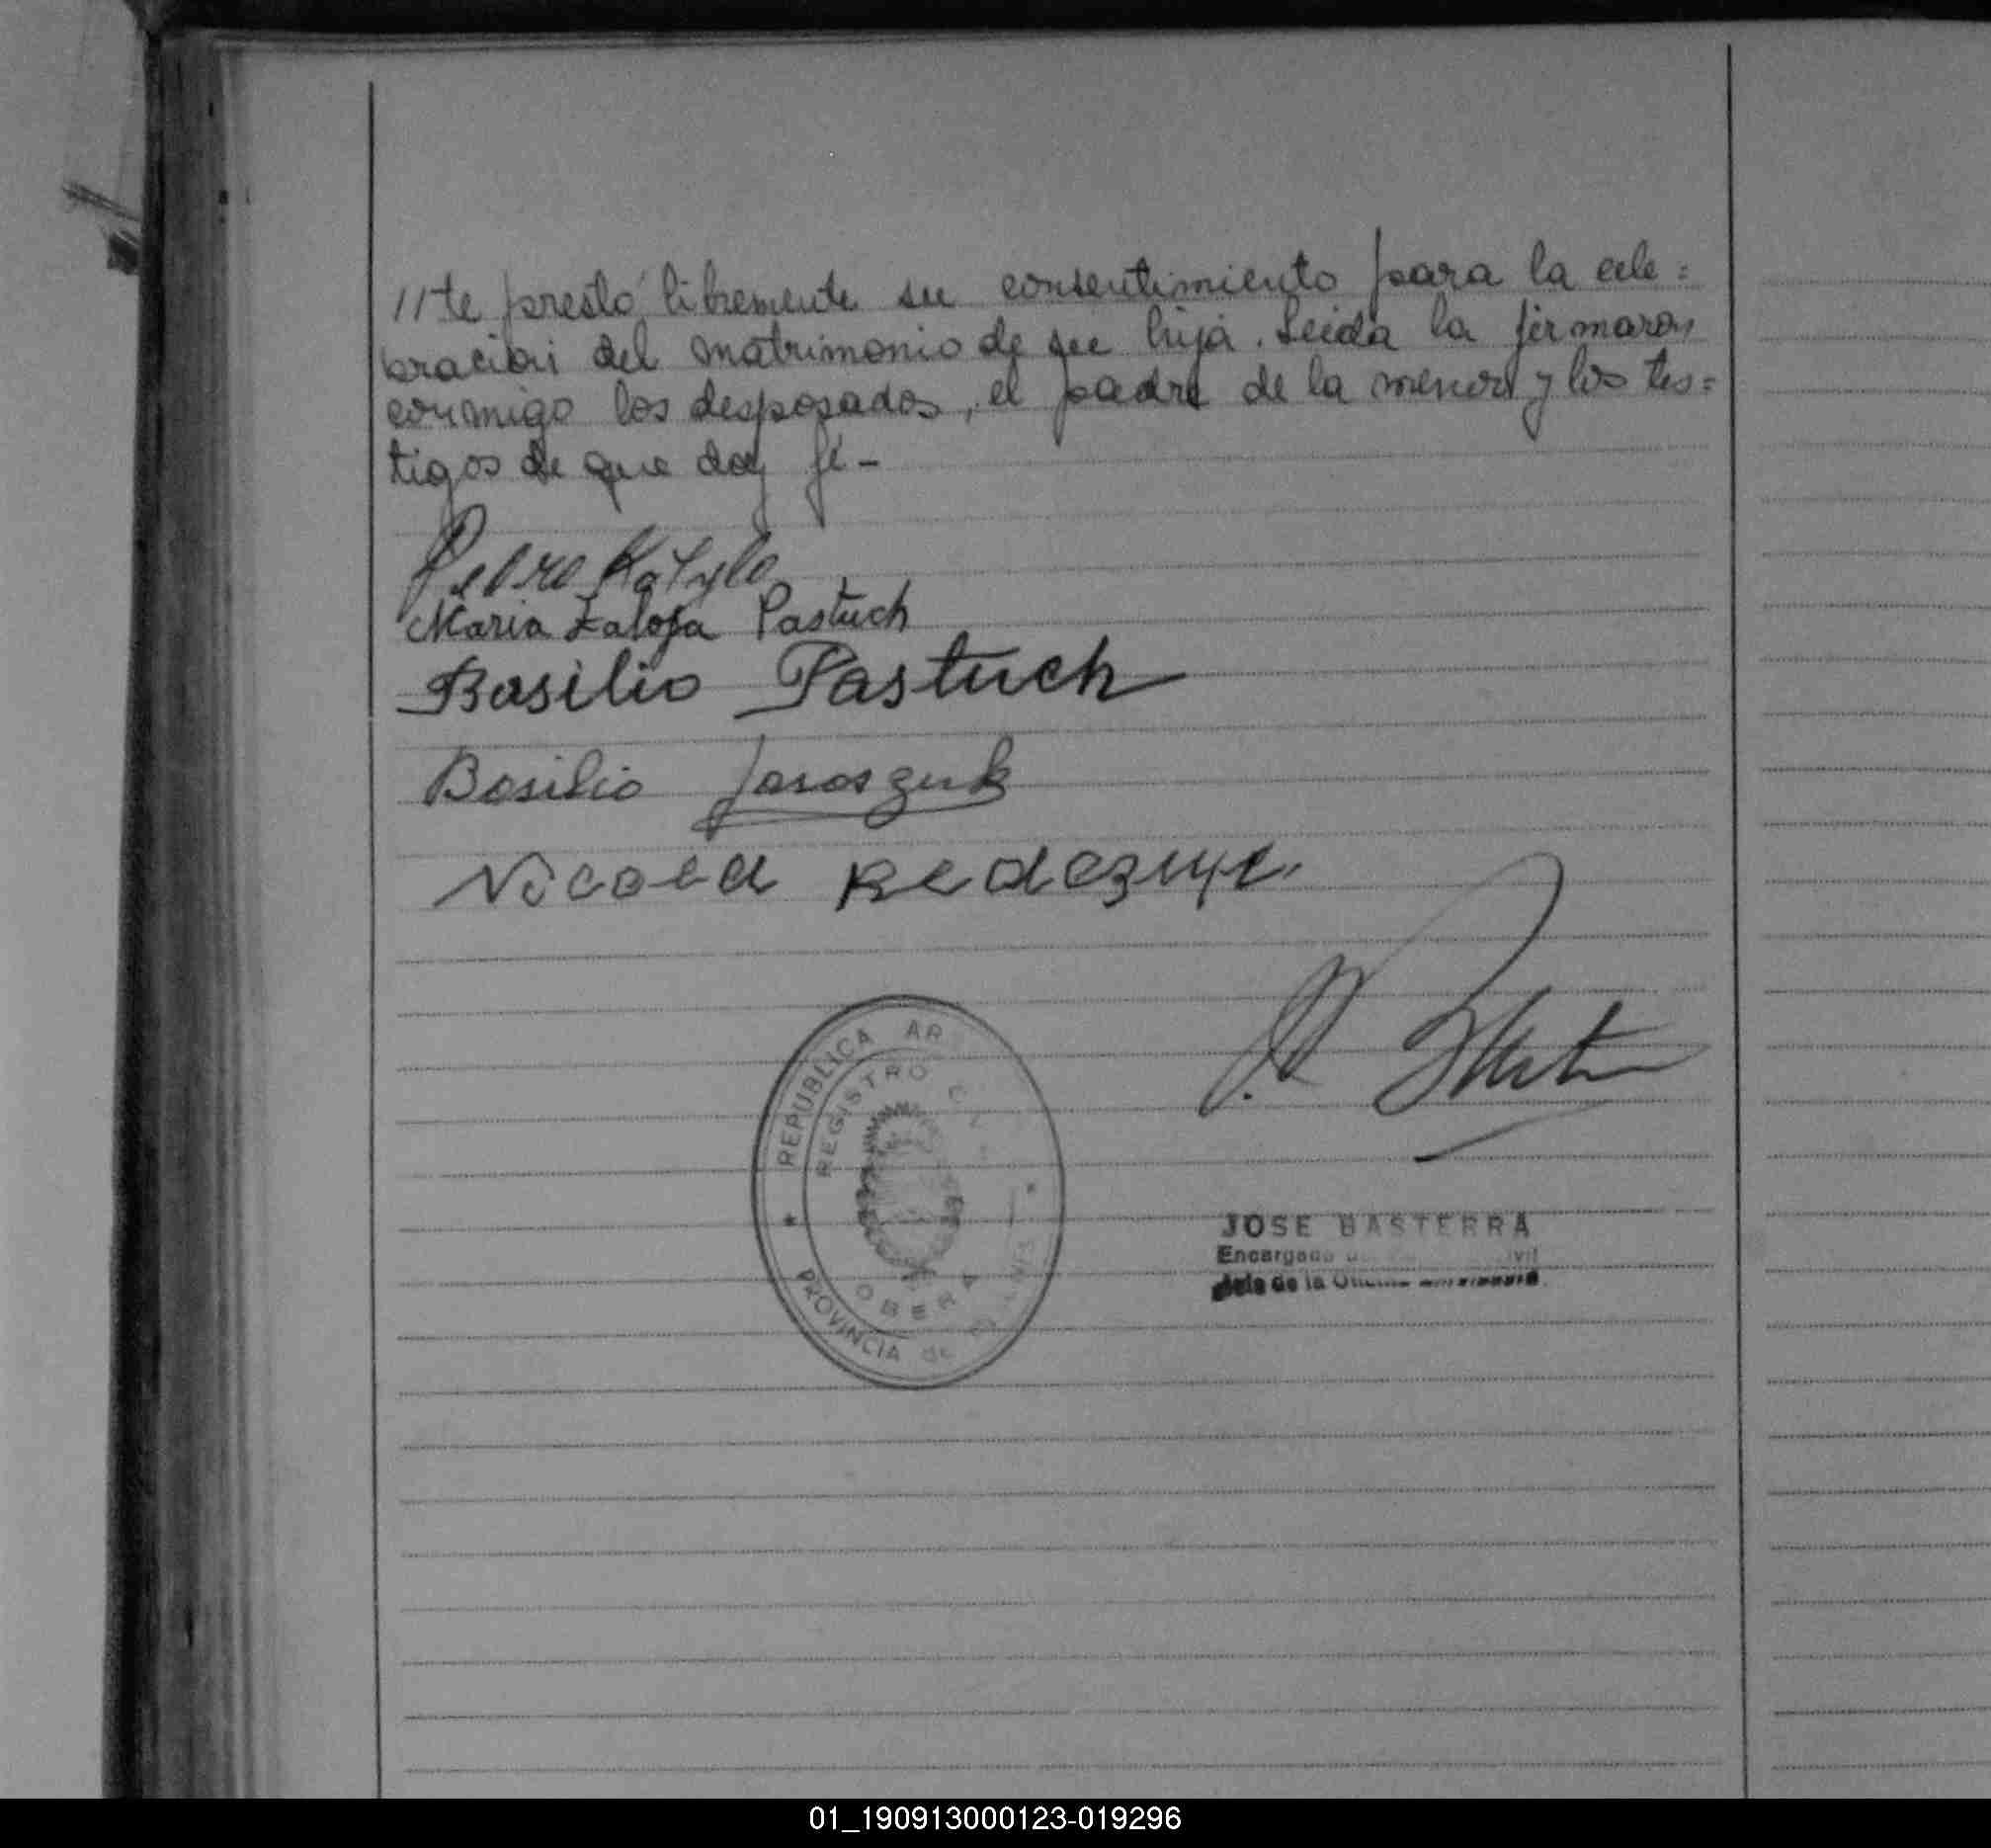 //te prestó libremente su consentimiento para la cele=
bración del matrimonio de su hija. Leida la firmaron
conmigo los desposados, el padre de la menor y los tes=
tigos de que doy fé-
Pedro Kotylo
Maria Zalofa Pastuch
Basilio Pastuch
Basilio Jaroszuk
REPUBLICA AR
REGISTRO CIVIL
OBERA
PROVINCIA de
JOSE BASTERRA
Encargado
Jefe de la
01_190913000123-019296